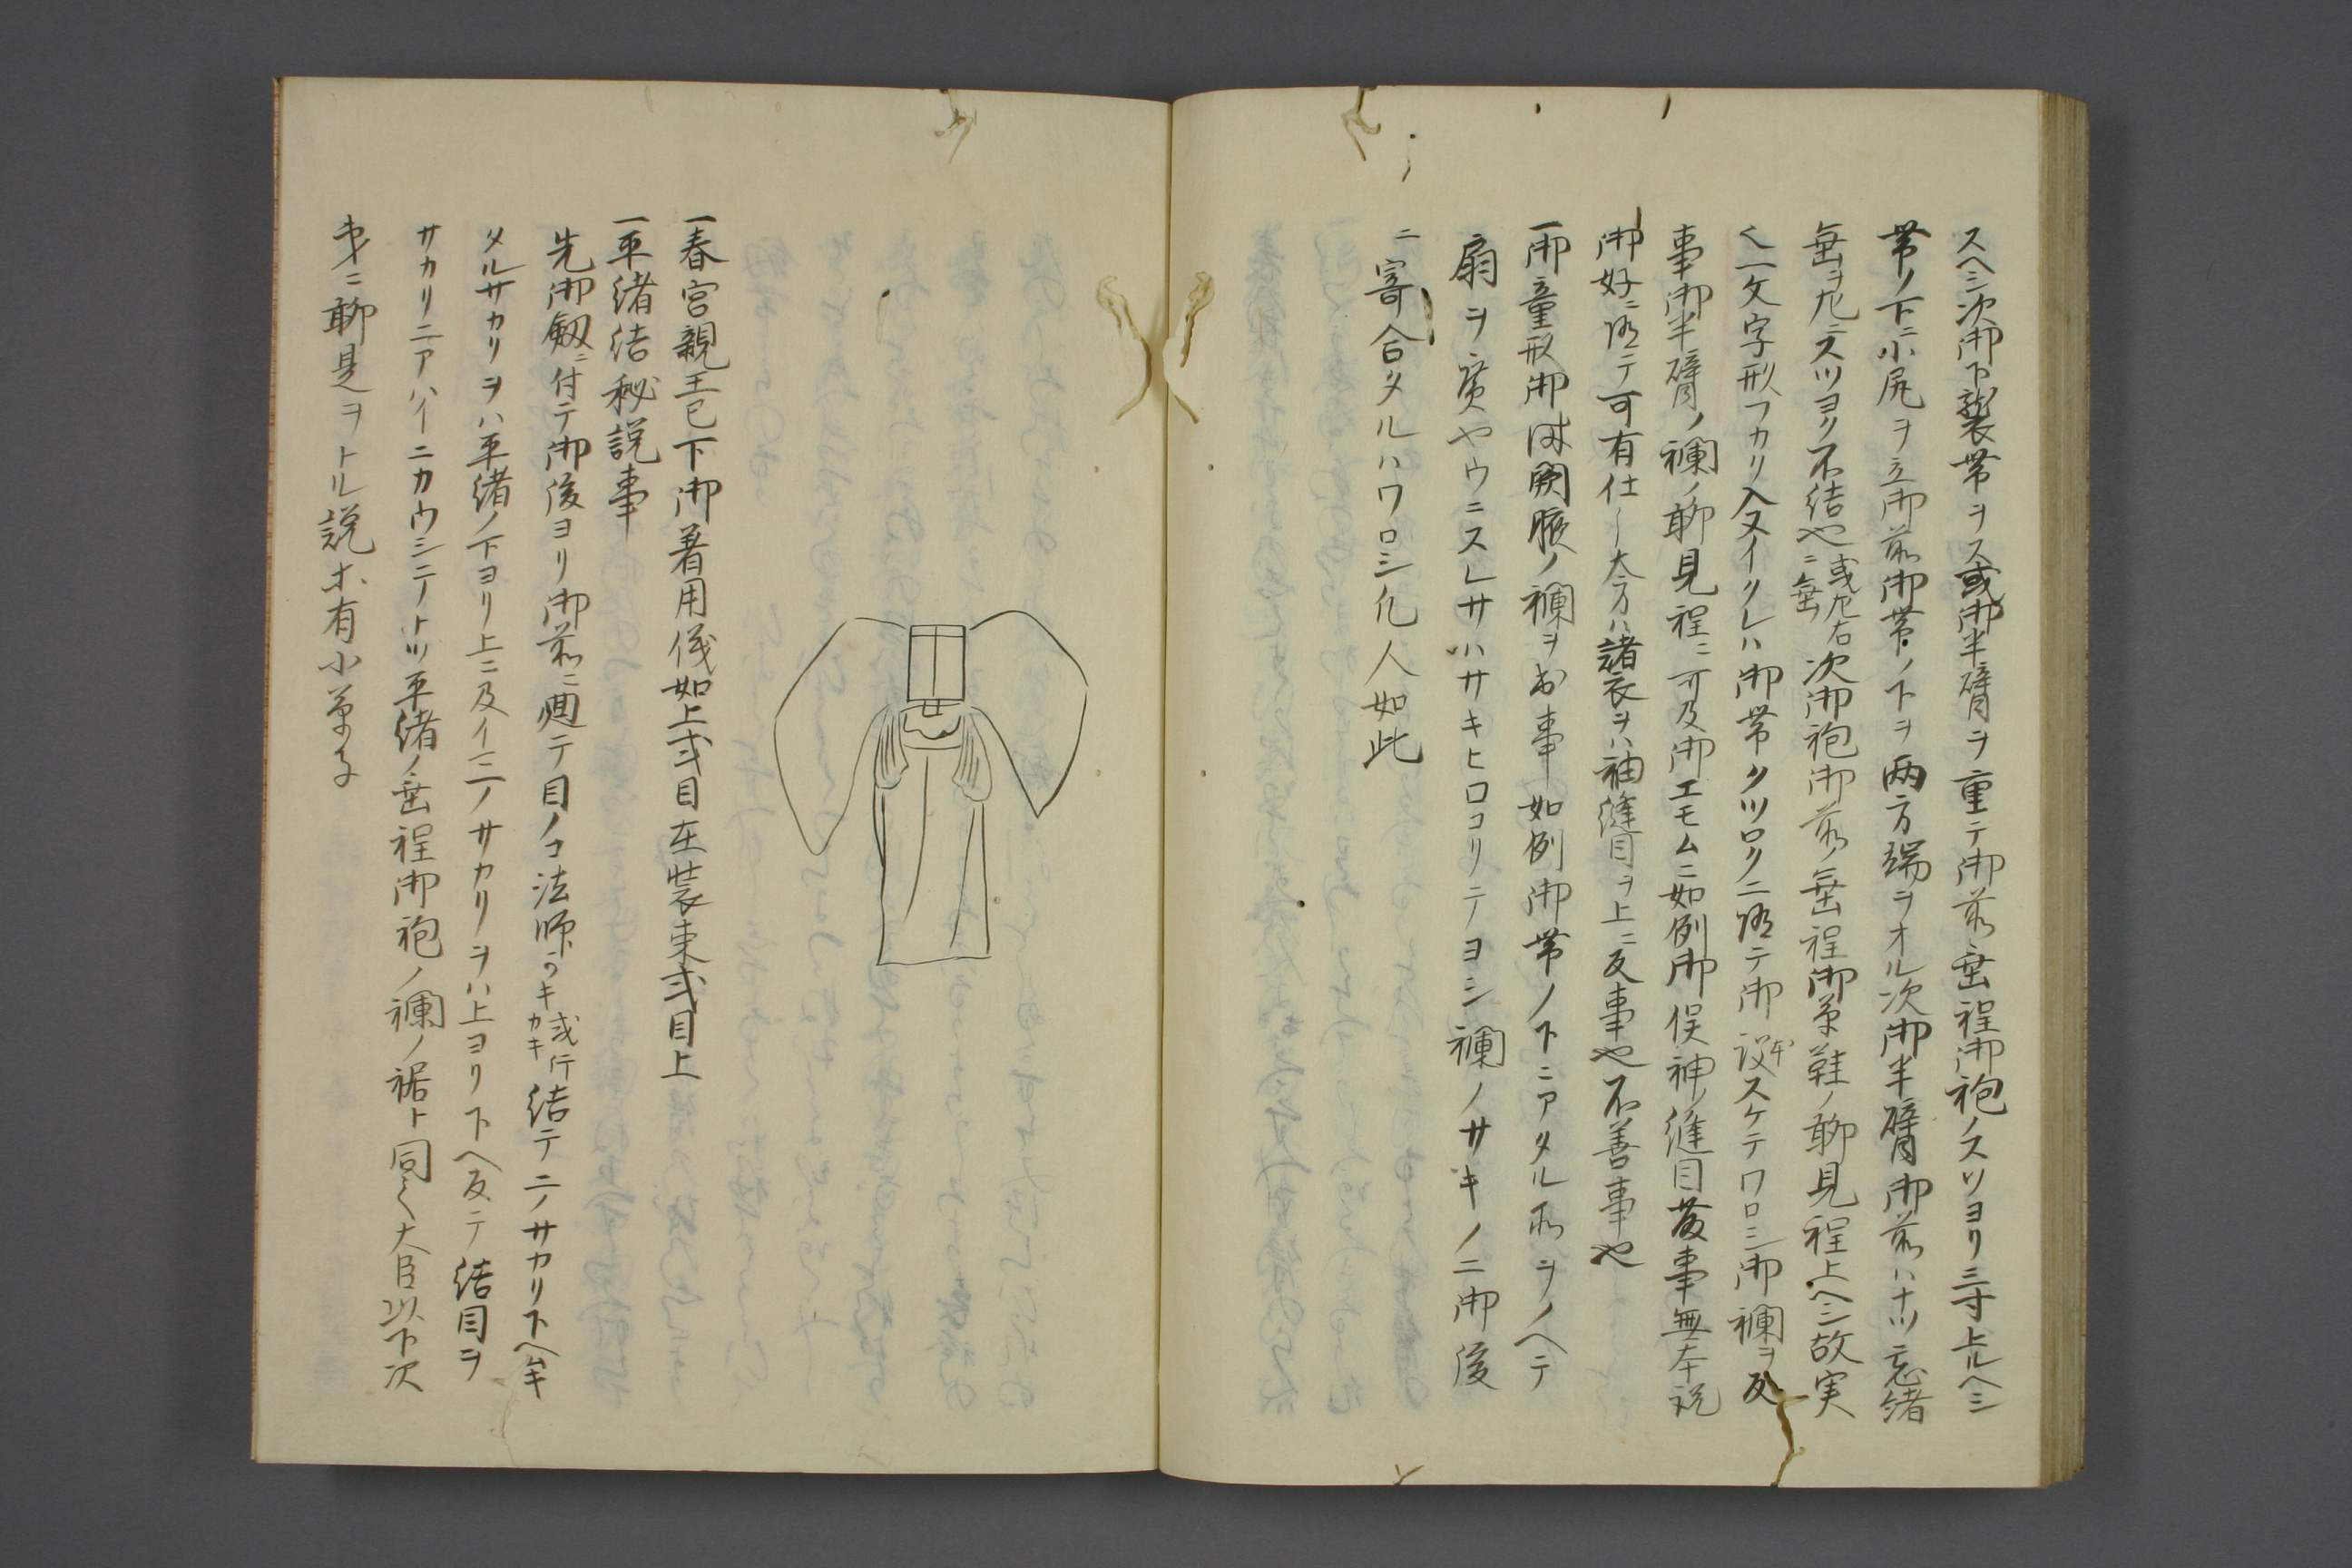 スヘシ次御下襲帯ヲス或御半臂ヲ重テ御前垂程御袍ノスソヨリ三寸上ルヘシ
帯ノ下ニ小尻ヲ立御前御帯ノ下ヲ両方端ヲオル次御半臂御前ハナツ忘緒
垂ヲ左ニスツヨク不結也或左右ニ垂次御袍御前ノ垂程御草鞋ノ聊見程上ヘシ故実
く一文字形フカリ入ヌイクレハ御帯クツロクニ随テ御設スケテワロシ御襴ヲ反
事御半臂ノ襴ノ聊見程ニ可及御エモムニ如例御俣神ノ縫目
御好ニ随テ可有仕大方ハ諸衣ヲハ袖縫目ヲ上ニ反事也不善事也
一御童形御時闕腋ノ襴ヲ事如例御帯ノ下ニアタル所ヲノヘテ
扇ヲ広ヤウニスレサハサキヒロコリテヨシ襴ノサキノニ御後
ニ寄合タルハワロシ凡人如此
一春宮親王已下御着用儀如上式目在装束式目上
一平緒結秘説事
先御釼ニ付テ御後ヨリ御前ニ廻テ目ノコ法師ラキ或行カキ結テ二ノサカリ下ヘ
タルサカリヲハ平緒ノ下ヨリ上ニ及イ三ノサカリヲハ上ヨリ下ヘ反テ結目ヲ
サカリニアハイニカウシニテノトツ平緒ノ垂程御袍ノ襴ノ裾ト同く大臣以下次
第ニ聊是ヲトル説ホ有小草子